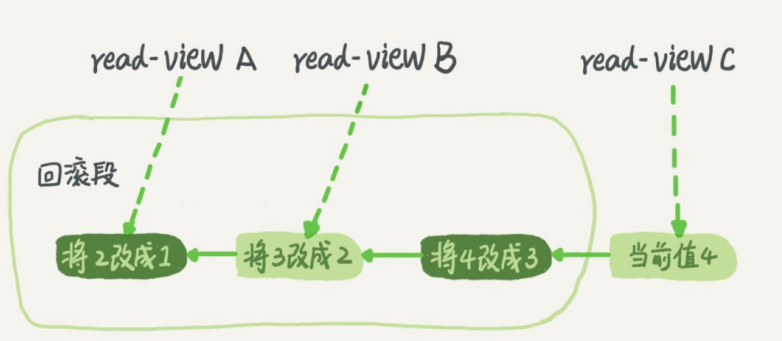 read-view A read-view B read-view C
回滚段
将2改成1 将3改成2 将4改成3 当前值4